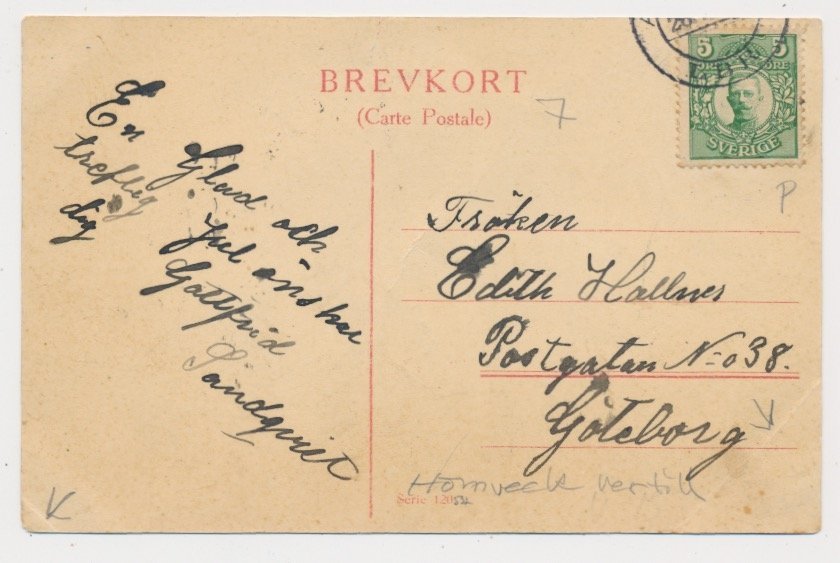 BREVKORT
(Carte Postale)
7
5 5
ÖRE ÖRE
SVERIGE
P
En Glad och
treflig Jul önskar
dig Gottfrid
Sandqvist
Fröken
Edith Hallnes
Postgatan No 38.
Göteborg
Hornveck vertik
Serie 120